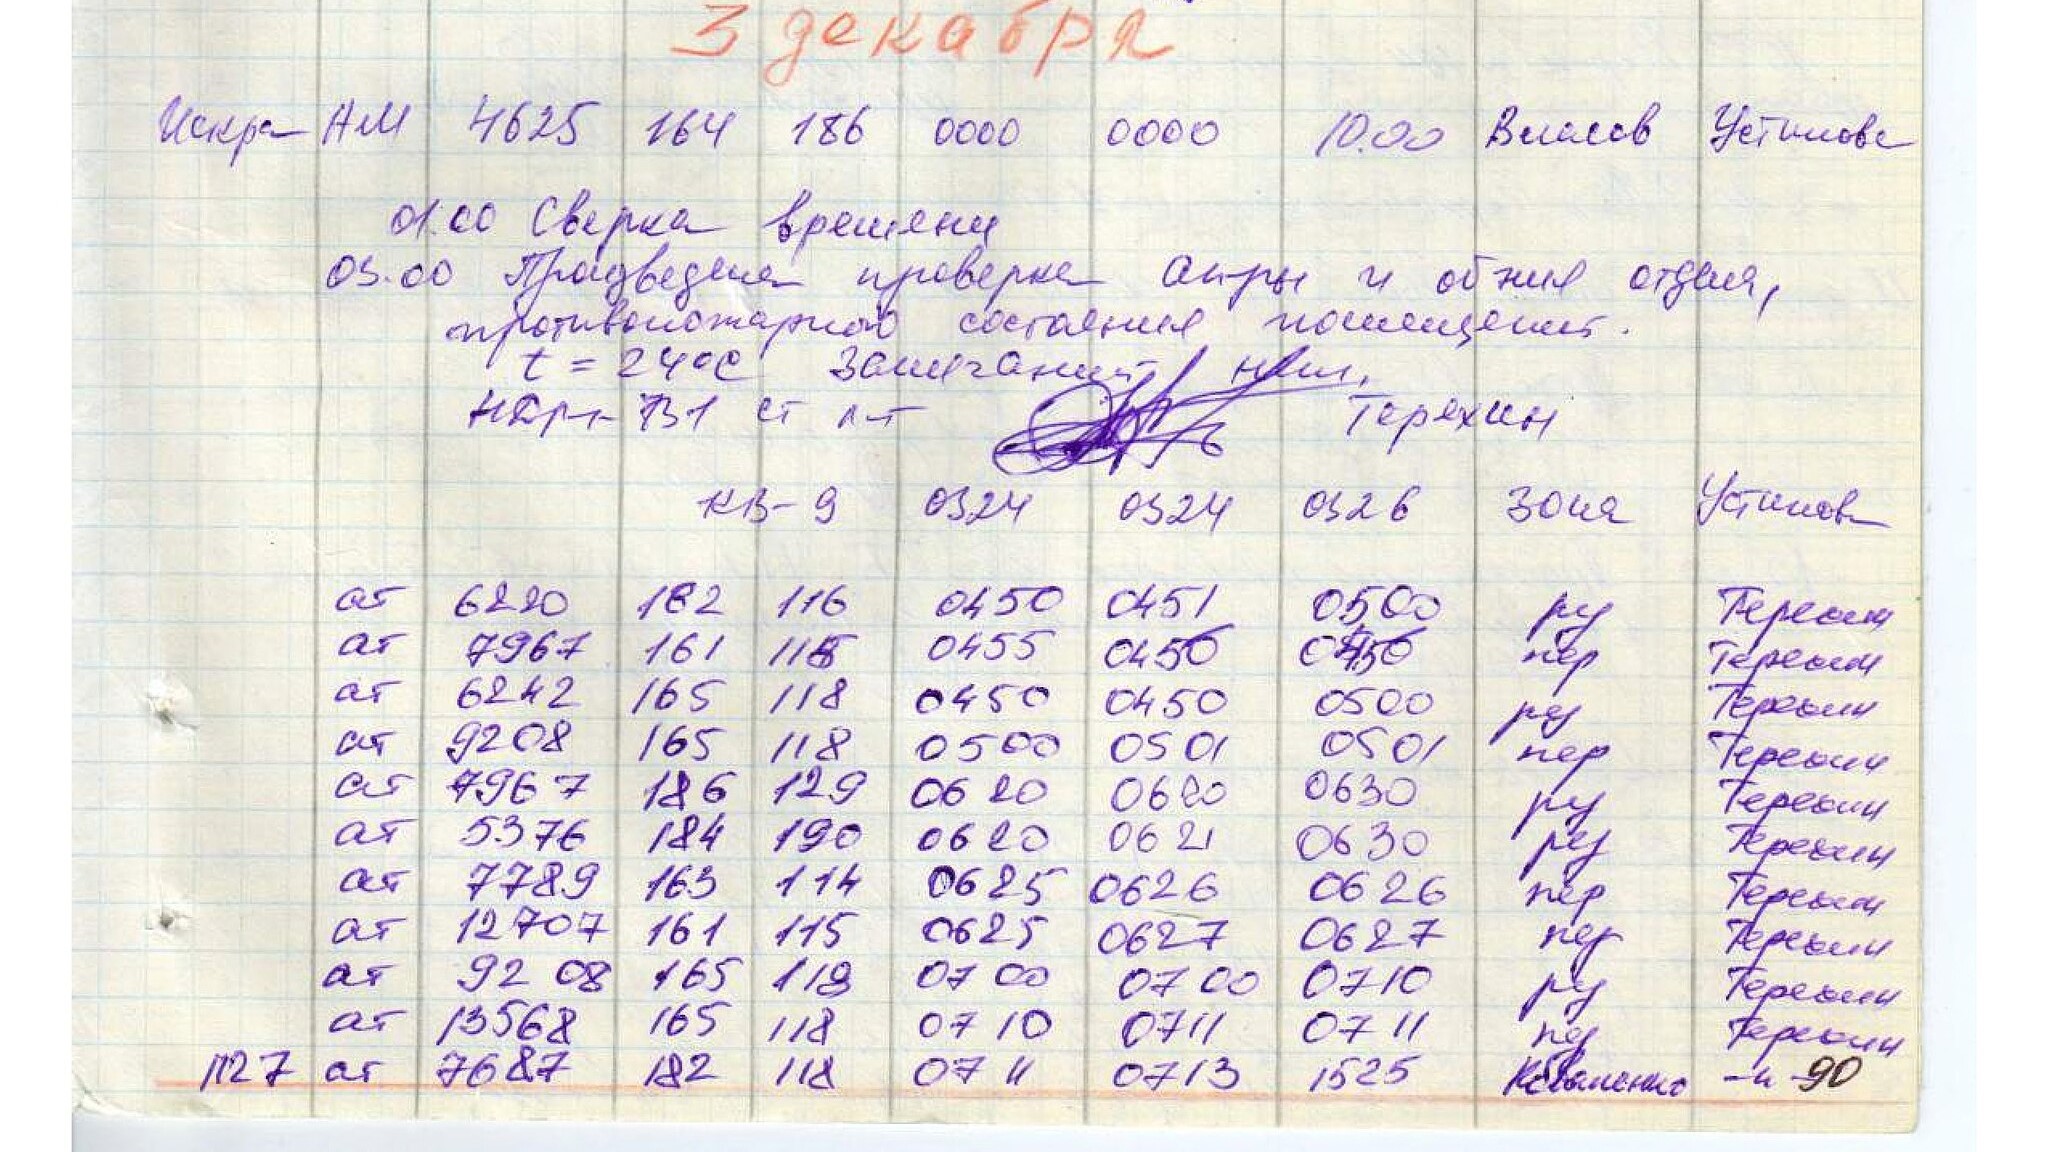 3 декабря
Искра АМ 4625 164 186 0000 0000 10.00 Власов Устинов
01.00 Сверка времени
03.00 Проведена проверка и отдыха,
противопожарного состояния помещений.
t = 24°С Замечаний нет.
731 ст л-т Терехин
КВ-9 0324 0324 0326 Зона Устинов
ат 6220 162 116 0450 0451 0500 ру Терехин
ат 7967 161 115 0455 0456 0456 пер Терехин
ат 6242 165 118 0450 0450 0500 ру Терехин
ат 9208 165 118 0500 0501 0501 пер Терехин
ат 7967 186 129 0620 0620 0630 ру Терехин
ат 5376 184 190 0620 0621 0630 ру Терехин
ат 7789 163 114 0625 0626 0626 пер Терехин
ат 12707 161 115 0625 0627 0627 пер Терехин
ат 9208 165 118 0700 0700 0710 ру Терехин
ат 13568 165 118 0710 0711 0711 Терехин
П27 ат 7687 182 118 0711 0713 1525 Коваленко -и- 90